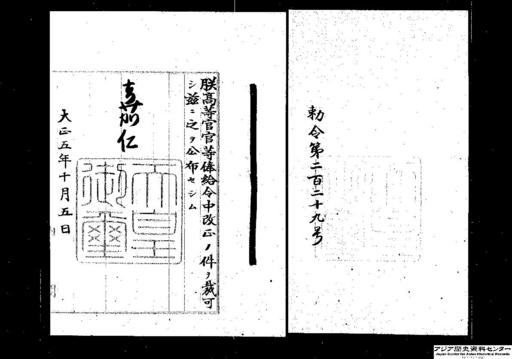 勅令第二百二十九号
朕高等官官等俸給令中改正ノ件ヲ裁可
シ茲ニ之ヲ公布セシム
嘉仁
天皇御璽
大正五年十月五日
アジア歴史資料センター
Japan Center for Asian Historical Records